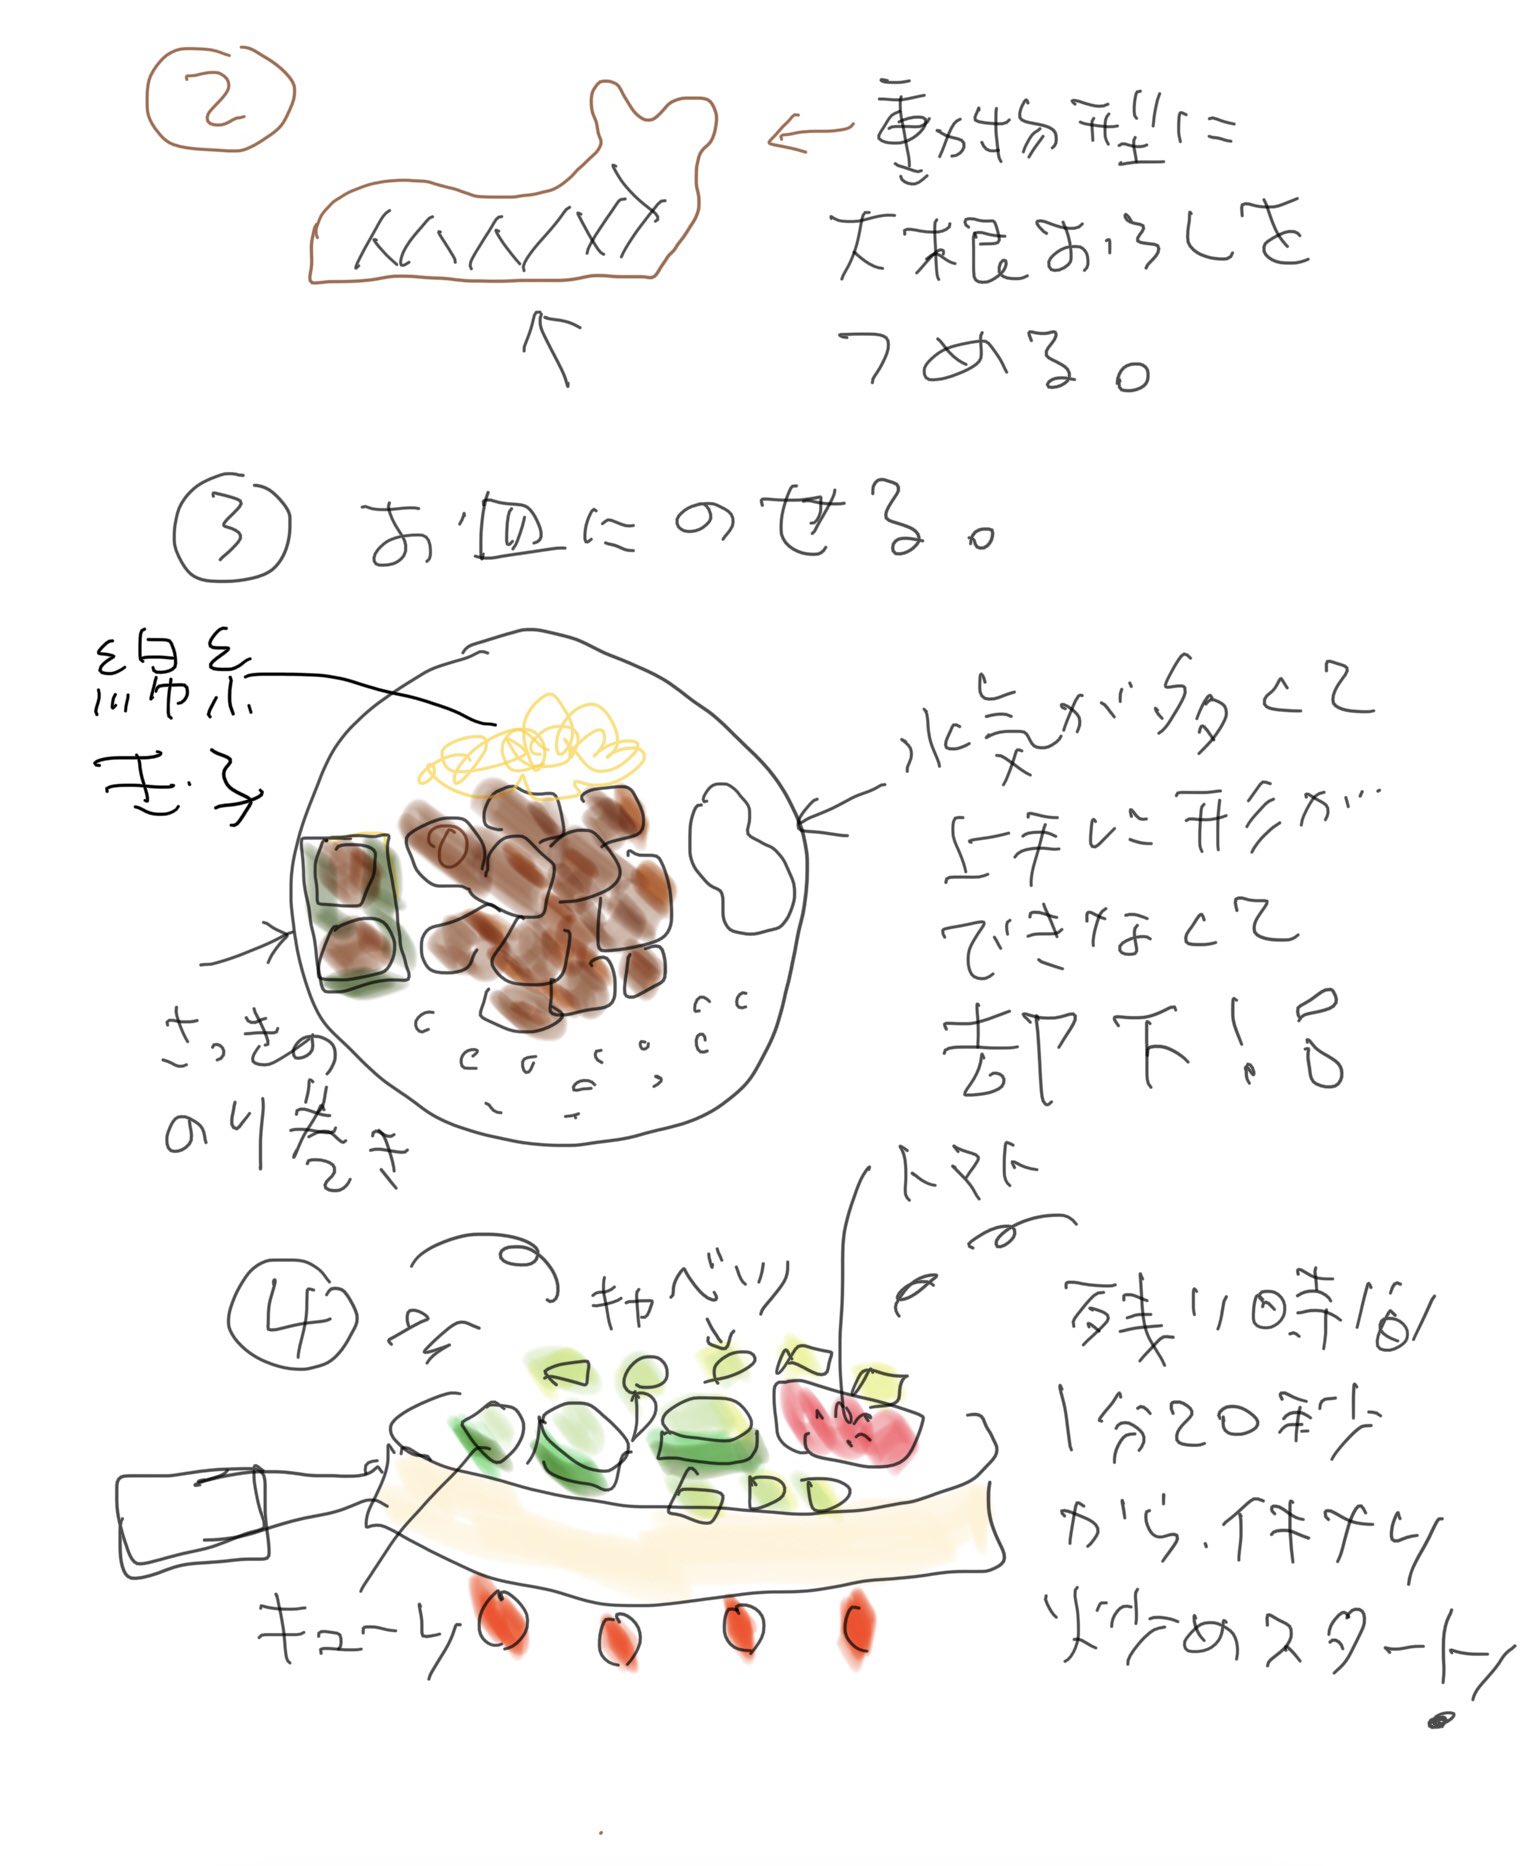 ②
動物型に
大根おろしを
つめる。
③ お皿にのせる。
綿糸
き
水気が多くて
上手に形が
できなくて
却下!!
さっきの
のり巻き
④
トマト
キャベツ
キューリ
残り時間
1分20秒
から、イキナリ
炒めスタート!